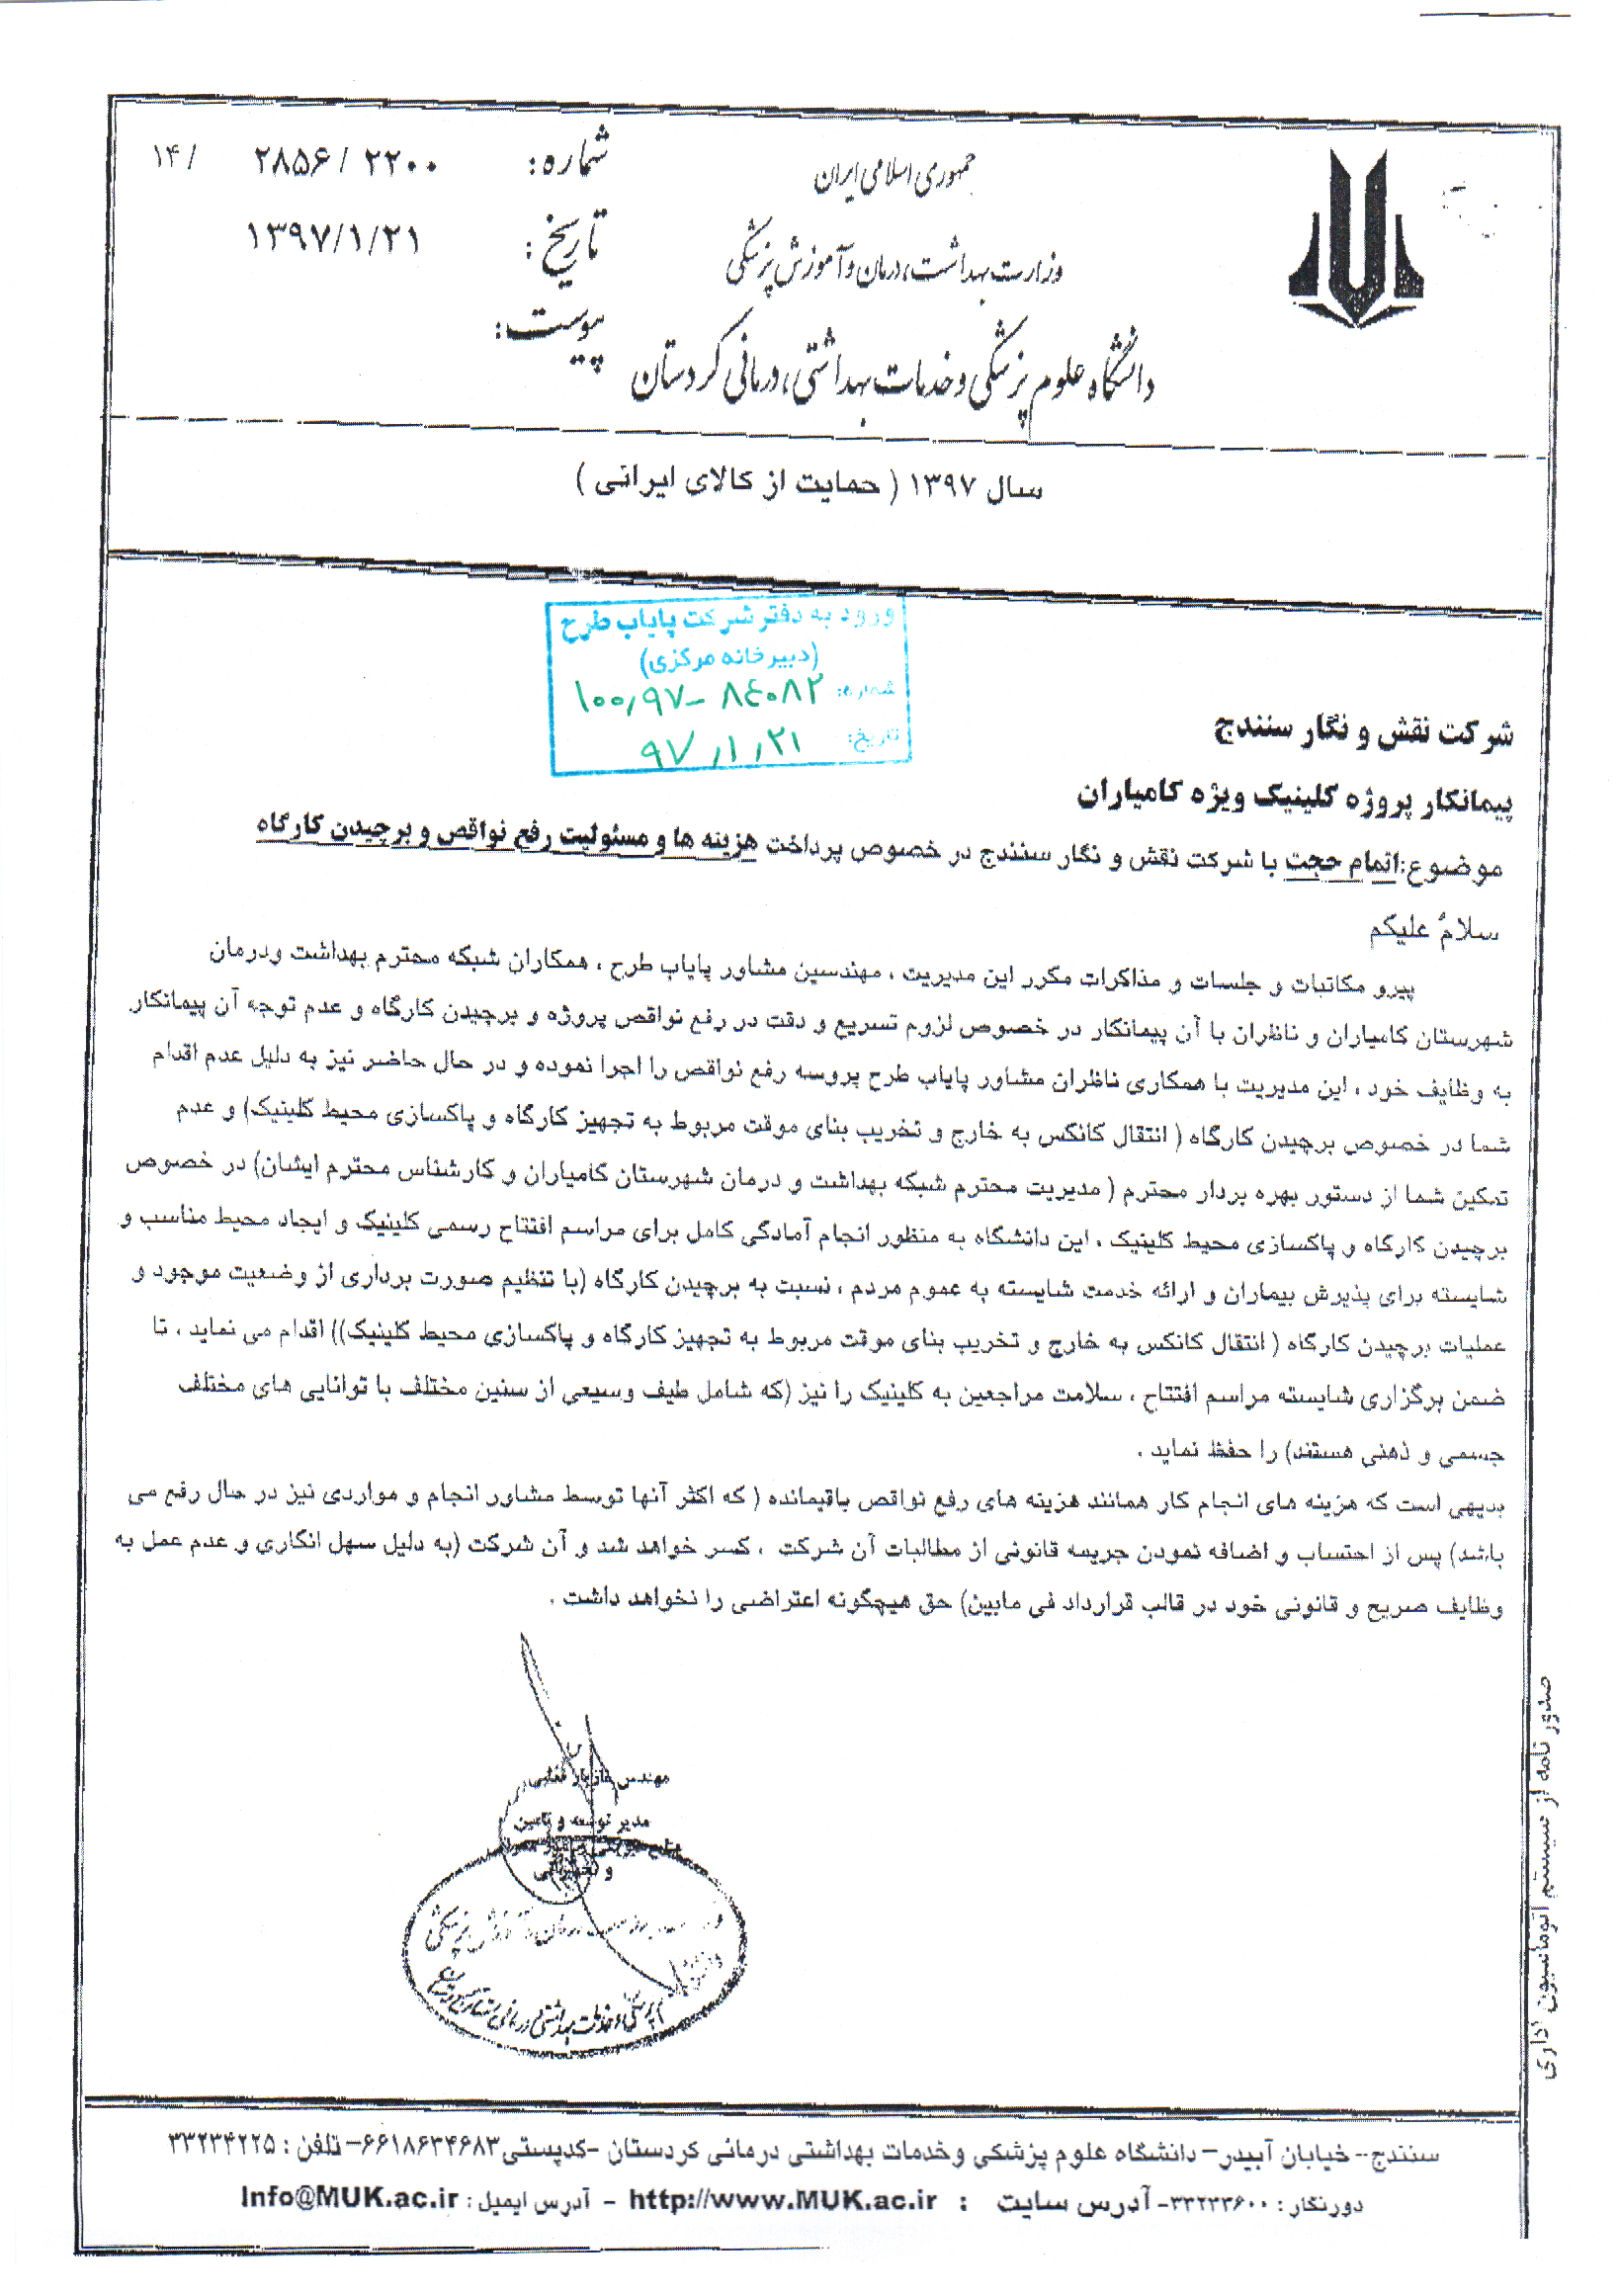 جمهوری اسلامی ایران
وزارت بهداشت، درمان و آموزش پزشکی
دانشگاه علوم پزشکی و خدمات بهداشتی، درمانی کردستان
شماره: ۲۸۵۶/۲۲۰۰ /۱۴
تاریخ: ۱۳۹۷/۱/۲۱
پیوست:
سال ۱۳۹۷ ( حمایت از کالای ایرانی )
ورود به دفتر شرکت پایاب طرح
(دبیرخانه مرکزی)
شماره: ۱۰۰٫۹۷-۸۴۰۸۲
تاریخ: ۹۷/۱/۲۱
شرکت نقش و نگار سنندج
پیمانکار پروژه کلینیک ویژه کامیاران
موضوع:اتمام حجت با شرکت نقش و نگار سنندج در خصوص پرداخت هزینه ها و مسئولیت رفع نواقص و برچیدن کارگاه
سلامُ علیکم
پیرو مکاتبات و جلسات و مذاکرات مکرر این مدیریت ، مهندسین مشاور پایاب طرح ، همکاران شبکه محترم بهداشت ودرمان
شهرستان کامیاران و ناظران با آن پیمانکار در خصوص لزوم تسریع و دقت در رفع نواقص پروژه و برچیدن کارگاه و عدم توجه آن پیمانکار
به وظایف خود ، این مدیریت با همکاری ناظران مشاور پایاب طرح پروسه رفع نواقص را اجرا نموده و در حال حاضر نیز به دلیل عدم اقدام
شما در خصوص برچیدن کارگاه ( انتقال کانکس به خارج و تخریب بنای موقت مربوط به تجهیز کارگاه و پاکسازی محیط کلینیک) و عدم
تمکین شما از دستور بهره بردار محترم ( مدیریت محترم شبکه بهداشت و درمان شهرستان کامیاران و کارشناس محترم ایشان) در خصوص
برچیدن کارگاه و پاکسازی محیط کلینیک ، این دانشگاه به منظور انجام آمادگی کامل برای مراسم افتتاح رسمی کلینیک و ایجاد محیط مناسب و
شایسته برای پذیرش بیماران و ارائه خدمت شایسته به عموم مردم ، نسبت به برچیدن کارگاه (با تنظیم صورت برداری از وضعیت موجود و
عملیات برچیدن کارگاه ( انتقال کانکس به خارج و تخریب بنای موقت مربوط به تجهیز کارگاه و پاکسازی محیط کلینیک)) اقدام می نماید ، تا
ضمن برگزاری شایسته مراسم افتتاح ، سلامت مراجعین به کلینیک را نیز (که شامل طیف وسیعی از سنین مختلف با توانایی های مختلف
جسمی و ذهنی هستند) را حفظ نماید .
بدیهی است که هزینه های انجام کار همانند هزینه های رفع نواقص باقیمانده ( که اکثر آنها توسط مشاور انجام و مواردی نیز در حال رفع می
باشد) پس از احتساب و اضافه نمودن جریمه قانونی از مطالبات آن شرکت ، کسر خواهد شد و آن شرکت (به دلیل سهل انگاری و عدم عمل به
وظایف صریح و قانونی خود در قالب قرارداد فی مابین) حق هیچگونه اعتراضی را نخواهد داشت .
مهندس
مدیر توسعه و تامین
صدور نامه از سیستم اتوماسیون اداری
سنندج-- خیابان آبیدر– دانشگاه علوم پزشکی وخدمات بهداشتی درمانی کردستان –کدپستی۶۶۱۸۶۳۴۶۸۳–تلفن : ۳۳۲۳۴۲۲۵
دورنگار : ۳۳۲۳۳۶۰۰-آدرس سایت : http://www.MUK.ac.ir - آدرس ایمیل : Info@MUK.ac.ir